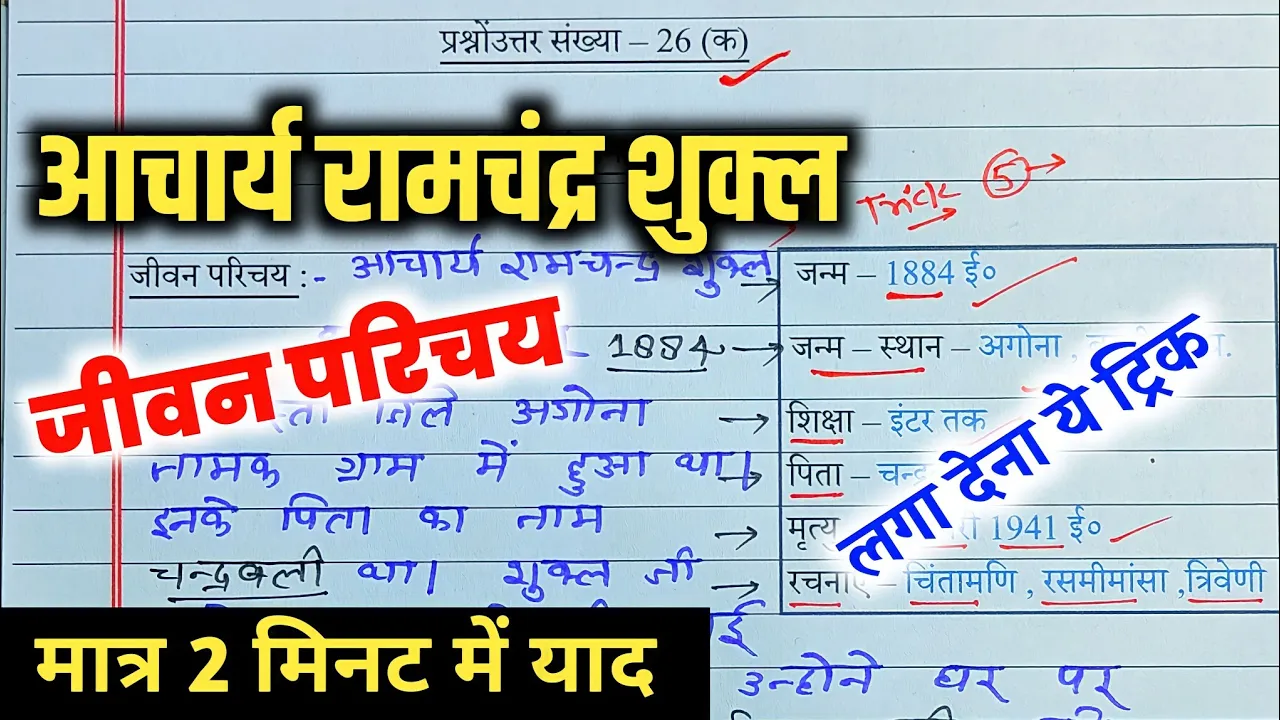 प्रश्नोंउत्तर संख्या – 26 (क)
आचार्य रामचंद्र शुक्ल
5
जीवन परिचय :- आचार्य रामचन्द्र शुक्ल
जन्म – 1884 ई०
जीवन परिचय
1884
जन्म – स्थान – अगोना ,
जिले अगोना
शिक्षा – इंटर तक
नामक ग्राम में हुआ था।
पिता –
इनके पिता का नाम
1941 ई०
लगा देना ये ट्रिक
चन्द्रबली था। शुक्ल जी
रचनाएँ – चिंतामणि , रसमीमांसा ,त्रिवेणी
मात्र 2 मिनट में याद
उन्होने घर पर